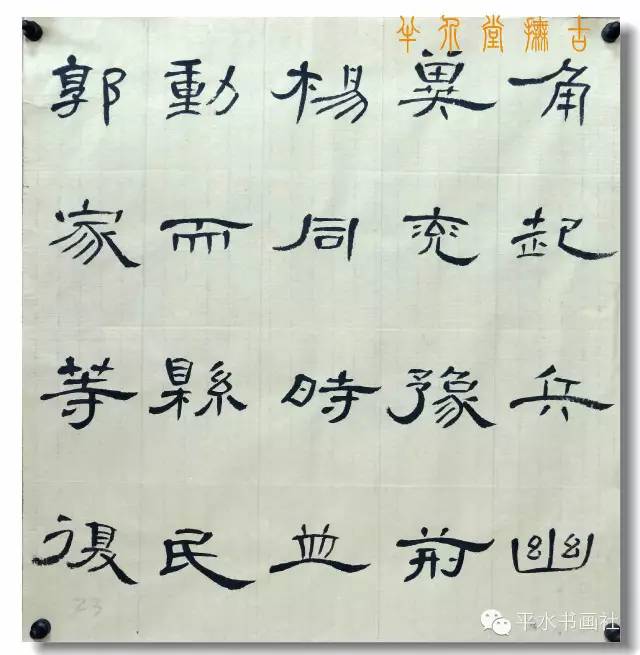 半 堂 古
角起兵幽
冀兗豫荊
楊同時並
動而縣民
郭家等復
23
平水书画社